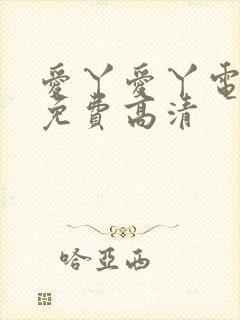 愛丫愛丫電
免費高清
哈亞西